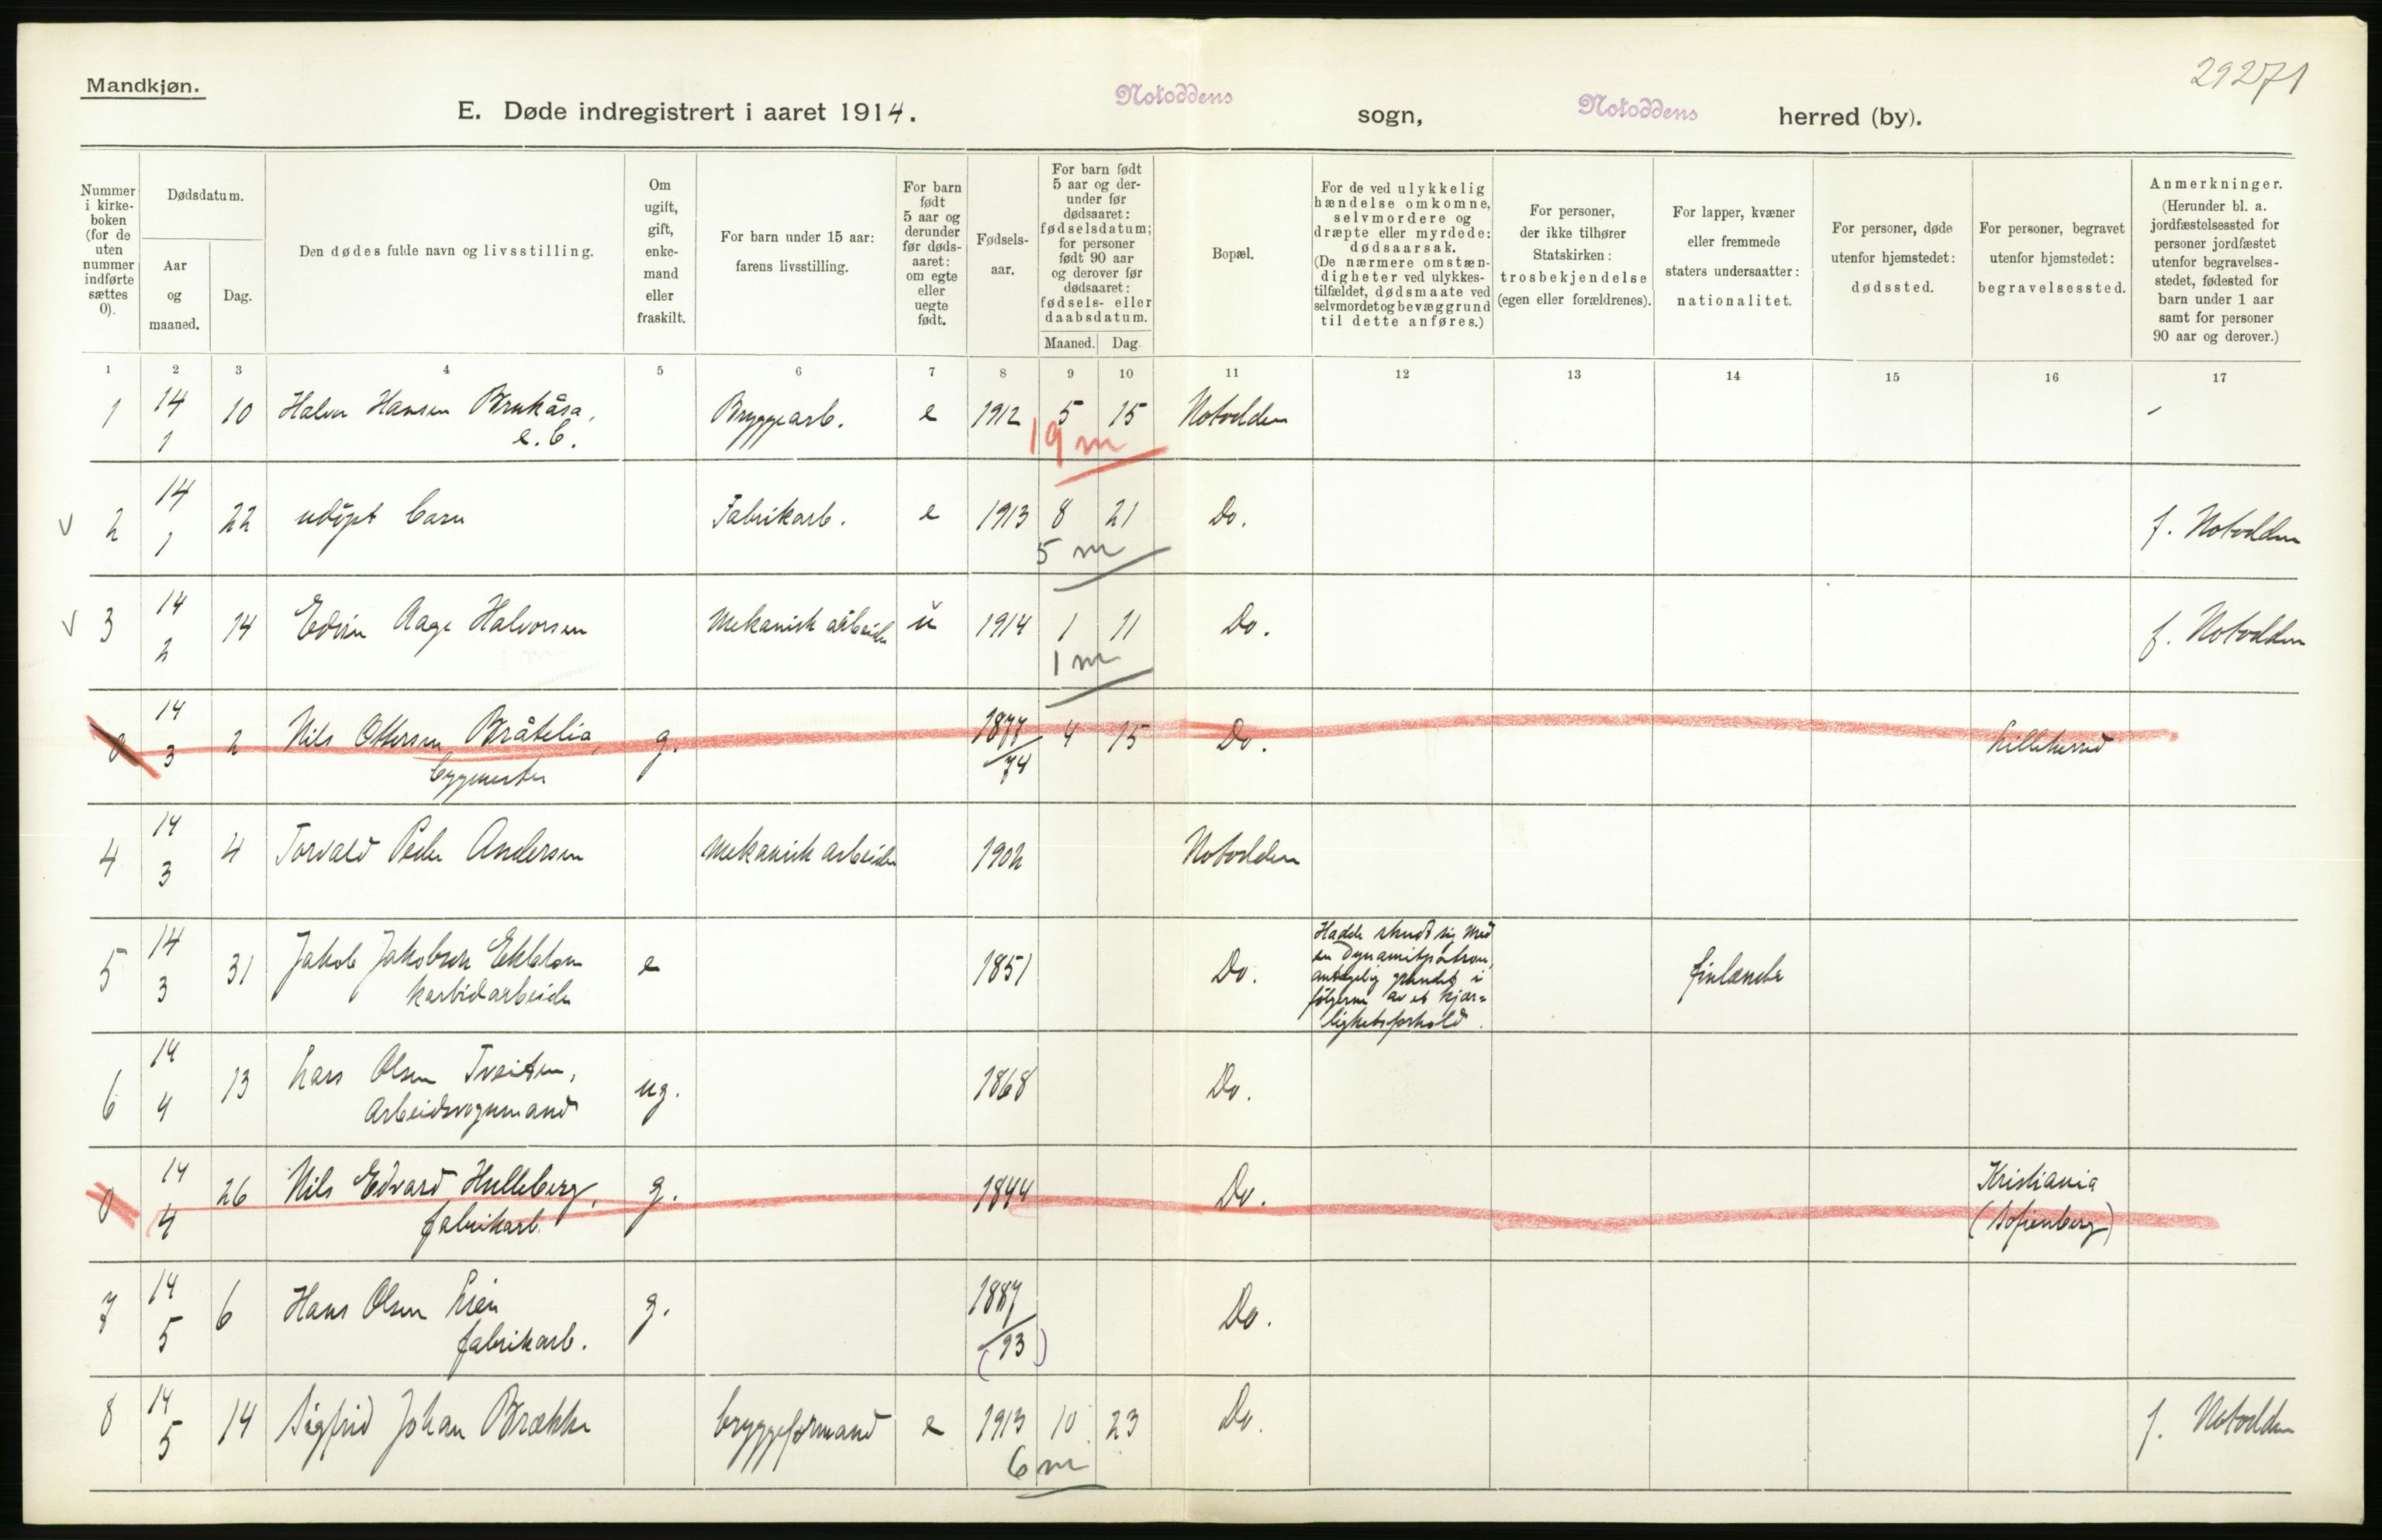 29271
Mandkjøn.
E. Døde indregistrert i aaret 1914. Notoddens sogn, Notoddens herred (by).
Nummer i kirke-boken (for de uten nummer indførte sættes 0).
Dødsdatum.
Aar og maaned.
Dag.
Den dødes fulde navn og livsstilling.
Om ugift, gift, enke-mand eller fraskilt.
For barn under 15 aar: farens livsstilling.
For barn født 5 aar og derunder før døds-aaret: om egte eller uegte født.
Fødsels-aar.
For barn født 5 aar og der-under før dødsaaret: fødselsdatum; for personer født 90 aar og derover før dødsaaret: fødsels- eller daabsdatum.
Maaned. Dag.
Bopæl.
For de ved ulykkelig hændelse omkomne, selvmordere og dræpte eller myrdede: dødsaarsak. (De nærmere omstæn-digheter ved ulykkes-tilfældet, dødsmaate ved selvmordet og bevæggrund til dette anføres.)
For personer, der ikke tilhører Statskirken: trosbekjendelse (egen eller forældrenes).
For lapper, kvæner eller fremmede staters undersaatter: nationalitet.
For personer, døde utenfor hjemstedet: dødssted.
For personer, begravet utenfor hjemstedet: begravelsessted.
Anmerkninger. (Herunder bl. a. jordfæstelsessted for personer jordfæstet utenfor begravelses-stedet, fødested for barn under 1 aar samt for personer 90 aar og derover.)
1 2 3 4 5 6 7 8 9 10 11 12 13 14 15 16 17
1 14/1 10 Halvor Hansen Brukåsa, e.b. Bryggearb. e 1912 5 15 Notodden
19 m
2 14/1 22 udøpt barn Fabrikarb. e 1913 8 21 Do. f. Notodden
5 m
3 14/2 14 Edvin Aage Halvorsen Mekanisk arbeider u 1914 1 11 Do. f. Notodden
1 m
0 14/3 2 Nils Ottersen Bråtelia, byggmester g. 1877/74 4 15 Do. Lilleherred
4 14/3 4 Torvald Peder Andersen Mekanisk arbeider 1902 Notodden
5 14/3 31 Jakob Jakobsen Ekblom karbidarbeider e 1851 Do. Hadde skudt sig med en dynamitpatron, antagelig grundet i følgerne av et kjær-lighetsforhold. finlænder
6 14/4 13 Lars Olsen Tveiten, Arbeidsvognmand ug. 1868 Do.
0 14/4 26 Nils Edvard Hulleberg, fabrikarb. g. 1844 Do. Kristiania (Sofienberg)
7 14/5 6 Hans Olsen Lien fabrikarb. g. 1887/(93) Do.
8 14/5 14 Sigfrid Johan Brække bryggeformand e 1913 10 23 Do. f. Notodden
6 m